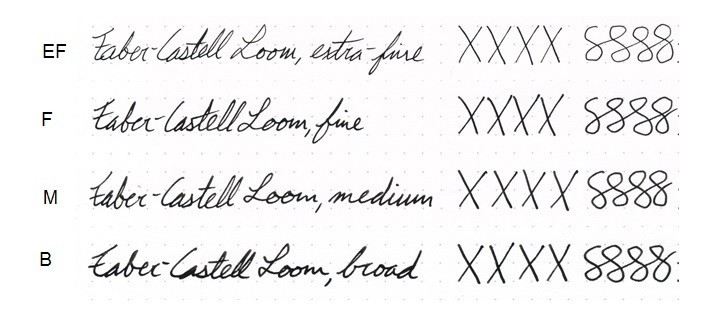 EF Faber-Castell Loom, extra-fine XXXX 8888
F Faber-Castell Loom, fine XXXX 8888
M Faber-Castell Loom, medium XXXX 8888
B Faber-Castell Loom, broad XXXX 8888